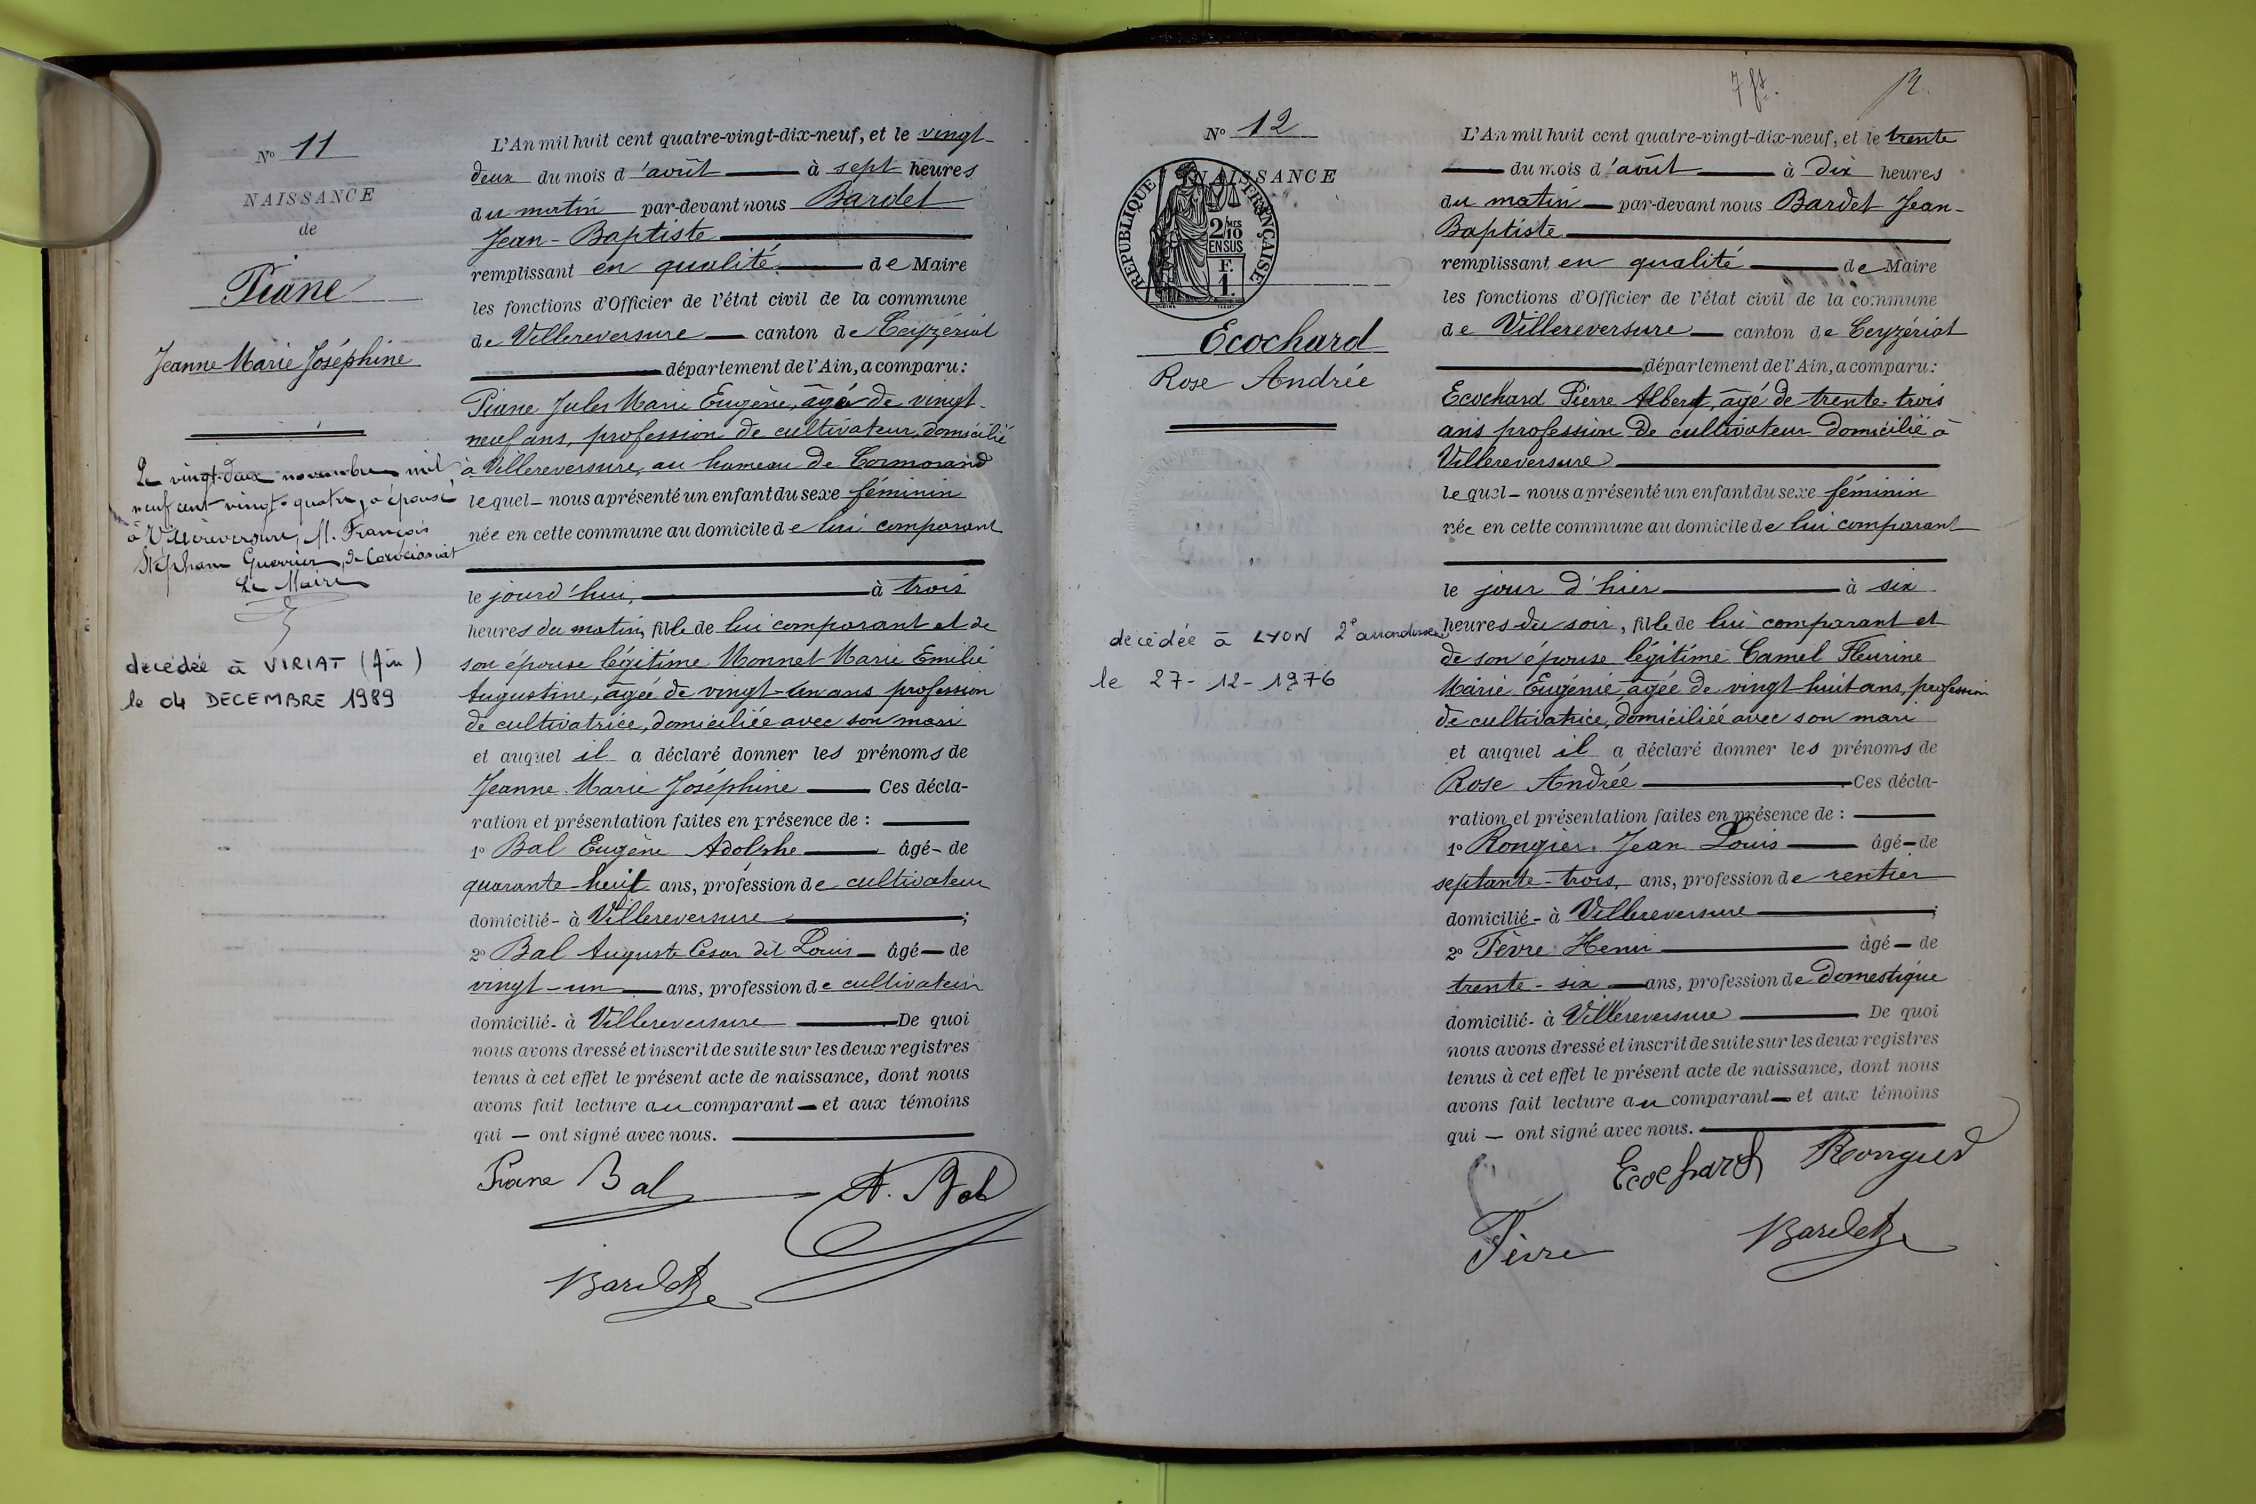 N° 11
NAISSANCE
de
Piane
Jeanne Marie Joséphine
Le vingt-deux novembre mil
neuf cent vingt-quatre, a épousé
à Villereversure, M. François
Stéphane Guerrier, de
Le Maire
décédée à VIRIAT (Ain)
le 04 DECEMBRE 1989
L'An mil huit cent quatre-vingt-dix-neuf, et le vingt-
deux du mois d'août à sept heures
du matin par-devant nous Bardet
Jean-Baptiste
remplissant en qualité de Maire
les fonctions d'Officier de l'état civil de la commune
de Villereversure canton de Ceyzériat
département de l'Ain, a comparu:
Piane Jules Marie Eugène, âgé de vingt-
neuf ans, profession de cultivateur, domicilié
à Villereversure, au hameau de Cormorand
lequel nous a présenté un enfant du sexe féminin
née en cette commune au domicile de lui comparant
le jourd'hui, à trois
heures du matin, fille de lui comparant et de
son épouse légitime Monnet Marie Emilie
Augustine, âgée de vingt-un ans profession
de cultivatrice, domiciliée avec son mari
et auquel il a déclaré donner les prénoms de
Jeanne Marie Joséphine Ces décla-
ration et présentation faites en présence de :
1° Bal Eugène Adolphe âgé de
quarante-huit ans, profession de cultivateur
domicilié à Villereversure ;
2° Bal Auguste Cesar dit Louis âgé de
vingt-un ans, profession de cultivateur
domicilié à Villereversure De quoi
nous avons dressé et inscrit de suite sur les deux registres
tenus à cet effet le présent acte de naissance, dont nous
avons fait lecture au comparant et aux témoins
qui — ont signé avec nous.
Piane Bal A. Bal
Bardet
7 ft.
12
N° 12
NAISSANCE
RÉPUBLIQUE FRANÇAISE
2/10
EN SUS
F.
1
Ecochard
Rose Andrée
décédée à LYON 2e arrondissement
le 27-12-1976
L'An mil huit cent quatre-vingt-dix-neuf, et le trente
du mois d'août à dix heures
du matin par-devant nous Bardet Jean-
Baptiste
remplissant en qualité de Maire
les fonctions d'Officier de l'état civil de la commune
de Villereversure canton de Ceyzériat
département de l'Ain, a comparu:
Ecochard Pierre Albert, âgé de trente-trois
ans profession de cultivateur domicilié à
Villereversure
lequel nous a présenté un enfant du sexe féminin
née en cette commune au domicile de lui comparant
le jour d'hier à six
heures du soir, fille de lui comparant et
de son épouse légitime Camel Fleurine
Marie Eugénie, âgée de vingt-huit ans, profession
de cultivatrice, domiciliée avec son mari
et auquel il a déclaré donner les prénoms de
Rose Andrée Ces décla-
ration et présentation faites en présence de :
1° Rongier Jean Louis âgé de
septante-trois, ans, profession de rentier
domicilié à Villereversure ;
2° Fèvre Henri âgé de
trente-six ans, profession de domestique
domicilié à Villereversure De quoi
nous avons dressé et inscrit de suite sur les deux registres
tenus à cet effet le présent acte de naissance, dont nous
avons fait lecture au comparant et aux témoins
qui — ont signé avec nous.
Ecochard Rongier
Fèvre Bardet